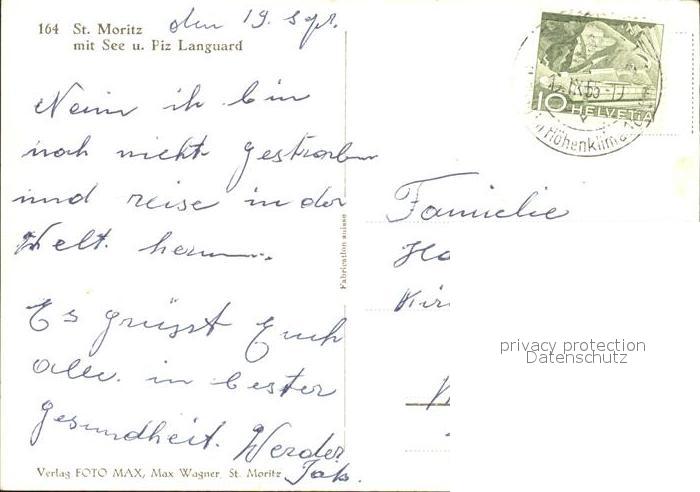 164 St. Moritz
mit See u. Piz Languard
den 19. Sept.
Nein ich bin
noch nicht gestorben
und reise in der
Welt. herum.
Es grüsst Euch
alle. in bester
gesundheit. Werder
Jak.
Verlag FOTO MAX, Max Wagner, St. Moritz
Fabrication suisse
10 HELVETIA
Höhenklima
Familie
Ha
Kir
privacy protection
Datenschutz